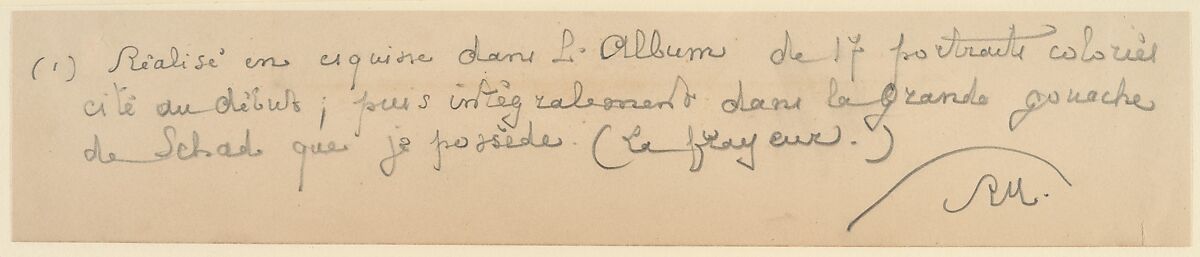 (1) Réalisé en esquisse dans L'Album de 17 portraits coloriés
cité au début ; puis intégralement dans la grande gouache
de Schad que je possède. (La frayeur.)
RM.